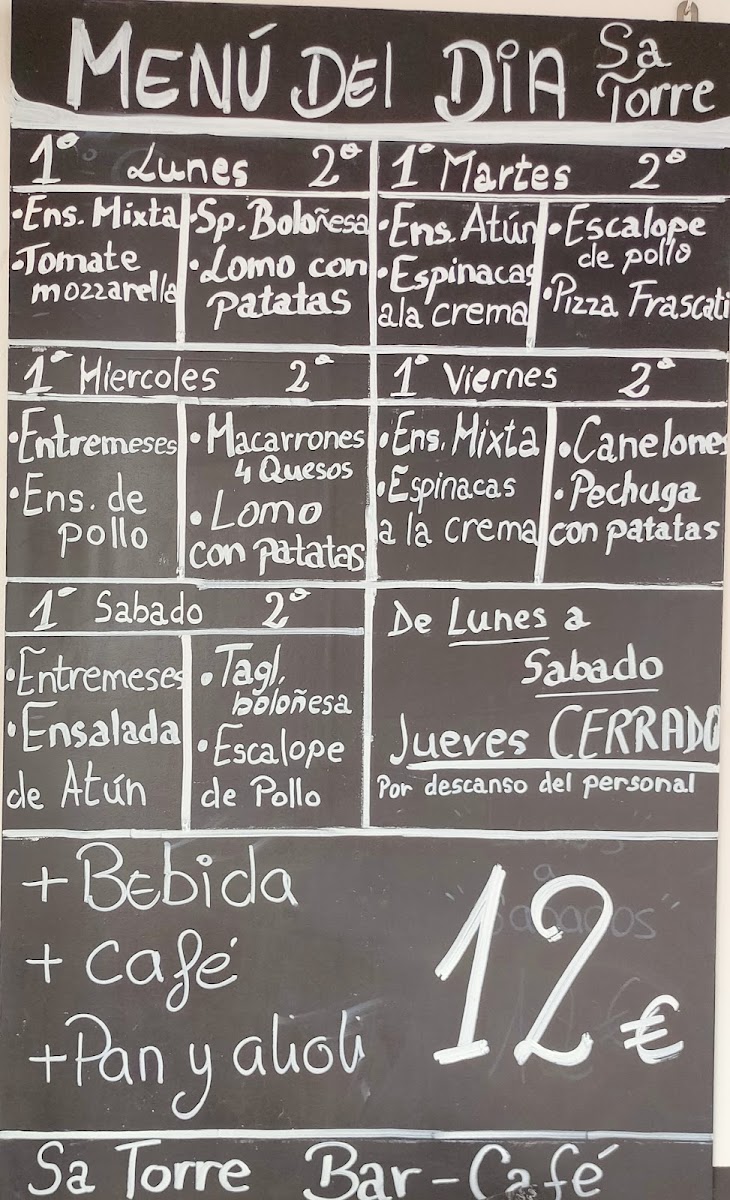 MENÚ DEl DiA Sa Torre
1º Lunes 2º
• Ens. Mixta
• Tomate
mozzarella
• Sp. Boloñesa
• Lomo con
patatas
1º Martes 2º
• Ens. Atún
• Espinacas
a la crema
• Escalope
de pollo
• Pizza Frascati
1º Miercoles 2º
• Entremeses
• Ens. de
pollo
• Macarrones
4 Quesos
• Lomo
con patatas
1º Viernes 2º
• Ens. Mixta
• Espinacas
a la crema
• Canelones
• Pechuga
con patatas
1º Sabado 2º
• Entremeses
• Ensalada
de Atún
• Tagl.
boloñesa
• Escalope
de Pollo
De Lunes a
Sabado
Jueves CERRADO
Por descanso del personal
+ Bebida
+ Café
+ Pan y alioli
12 €
Sa Torre Bar-Café